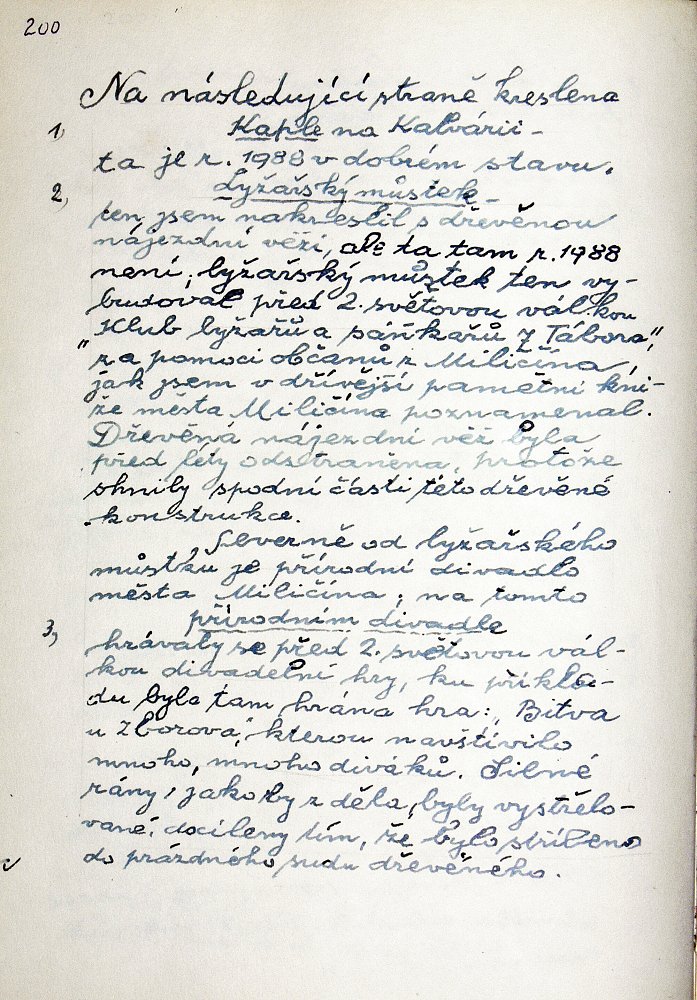 200
Na následující straně kreslena
1, Kaple na Kalvárii -
ta je r. 1988 v dobrém stavu.
2, Lyžařský můstek -
ten jsem nakreslil s dřevěnou
nájezdní věží, ale ta tam r. 1988
není; lyžařský můstek ten vy-
budoval před 2. světovou válkou
"Klub lyžařů a sáňkařů z Tábora",
za pomoci občanů z Miličína,
jak jsem v dřívější pamětní kni-
že města Miličína poznamenal.
Dřevěná nájezdní věž byla
před léty odstraněna, protože
shnily spodní části této dřevěné
konstrukce.
Severně od lyžařského
můstku je přírodní divadlo
města Miličína; na tomto
3, přírodním divadle
hrávaly se před 2. světovou vál-
kou divadelní hry, ku příkla-
du byla tam hrána hra: „Bitva
u Zborova", kterou navštívilo
mnoho, mnoho diváků. Silné
rány, jakoby z děla, byly vystřelo-
vané, docíleny tím, že bylo stříleno
do prázdného sudu dřevěného.